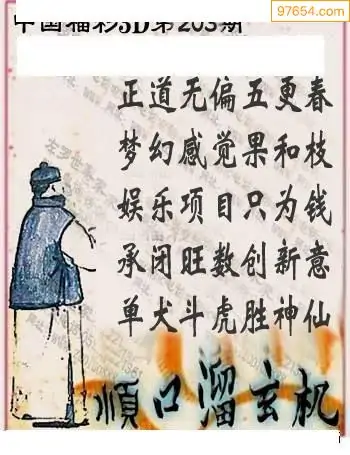 97654.com
中国福彩3D第203期
正道无偏五更春
梦幻感觉果和枝
娱乐项目只为钱
承闭旺数创新意
单犬斗虎胜神仙
顺口溜玄机